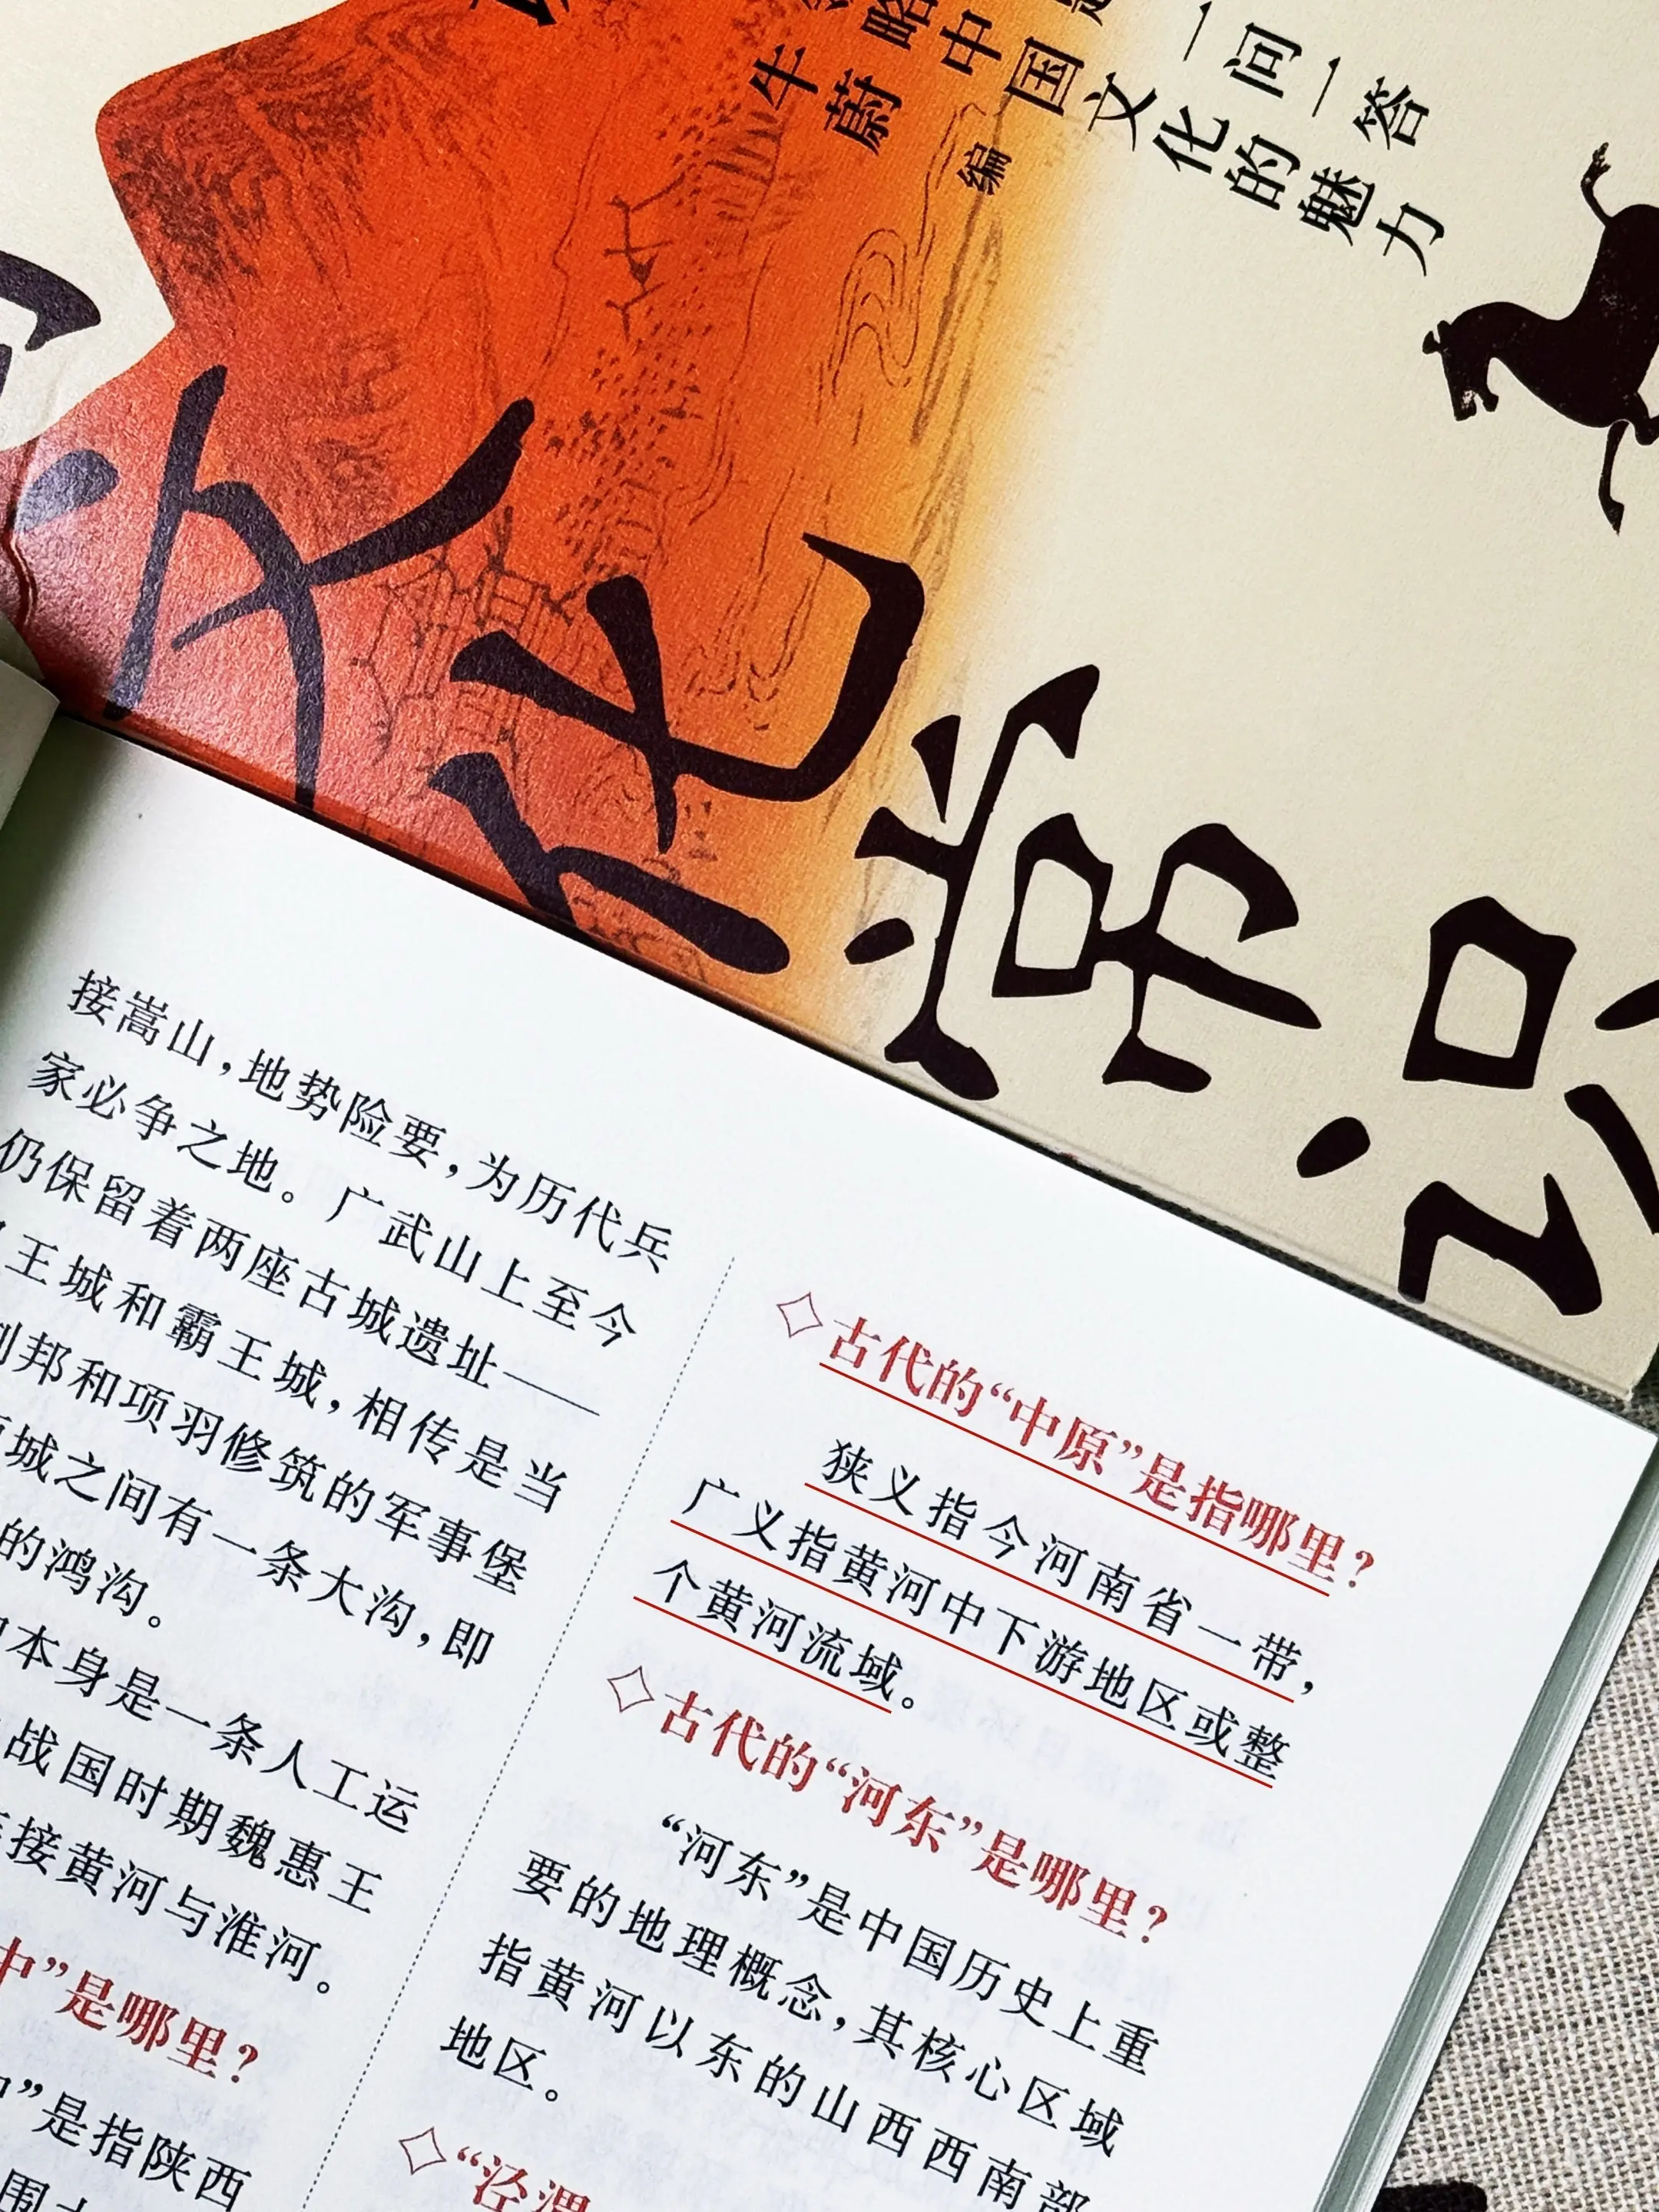 一问一答
略中国文化的魅力
牛蔚 编
文化常识
接嵩山，地势险要，为历代兵
家必争之地。广武山上至今
仍保留着两座古城遗址——
王城和霸王城，相传是当
邦和项羽修筑的军事堡
城之间有一条大沟，即
的鸿沟。
本身是一条人工运
战国时期魏惠王
接黄河与淮河。
中”是哪里？
”是指陕西
◇古代的“中原”是指哪里？
狭义指今河南省一带，
广义指黄河中下游地区或整
个黄河流域。
◇古代的“河东”是哪里？
“河东”是中国历史上重
要的地理概念，其核心区域
指黄河以东的山西西南部
地区。
◇“泾渭